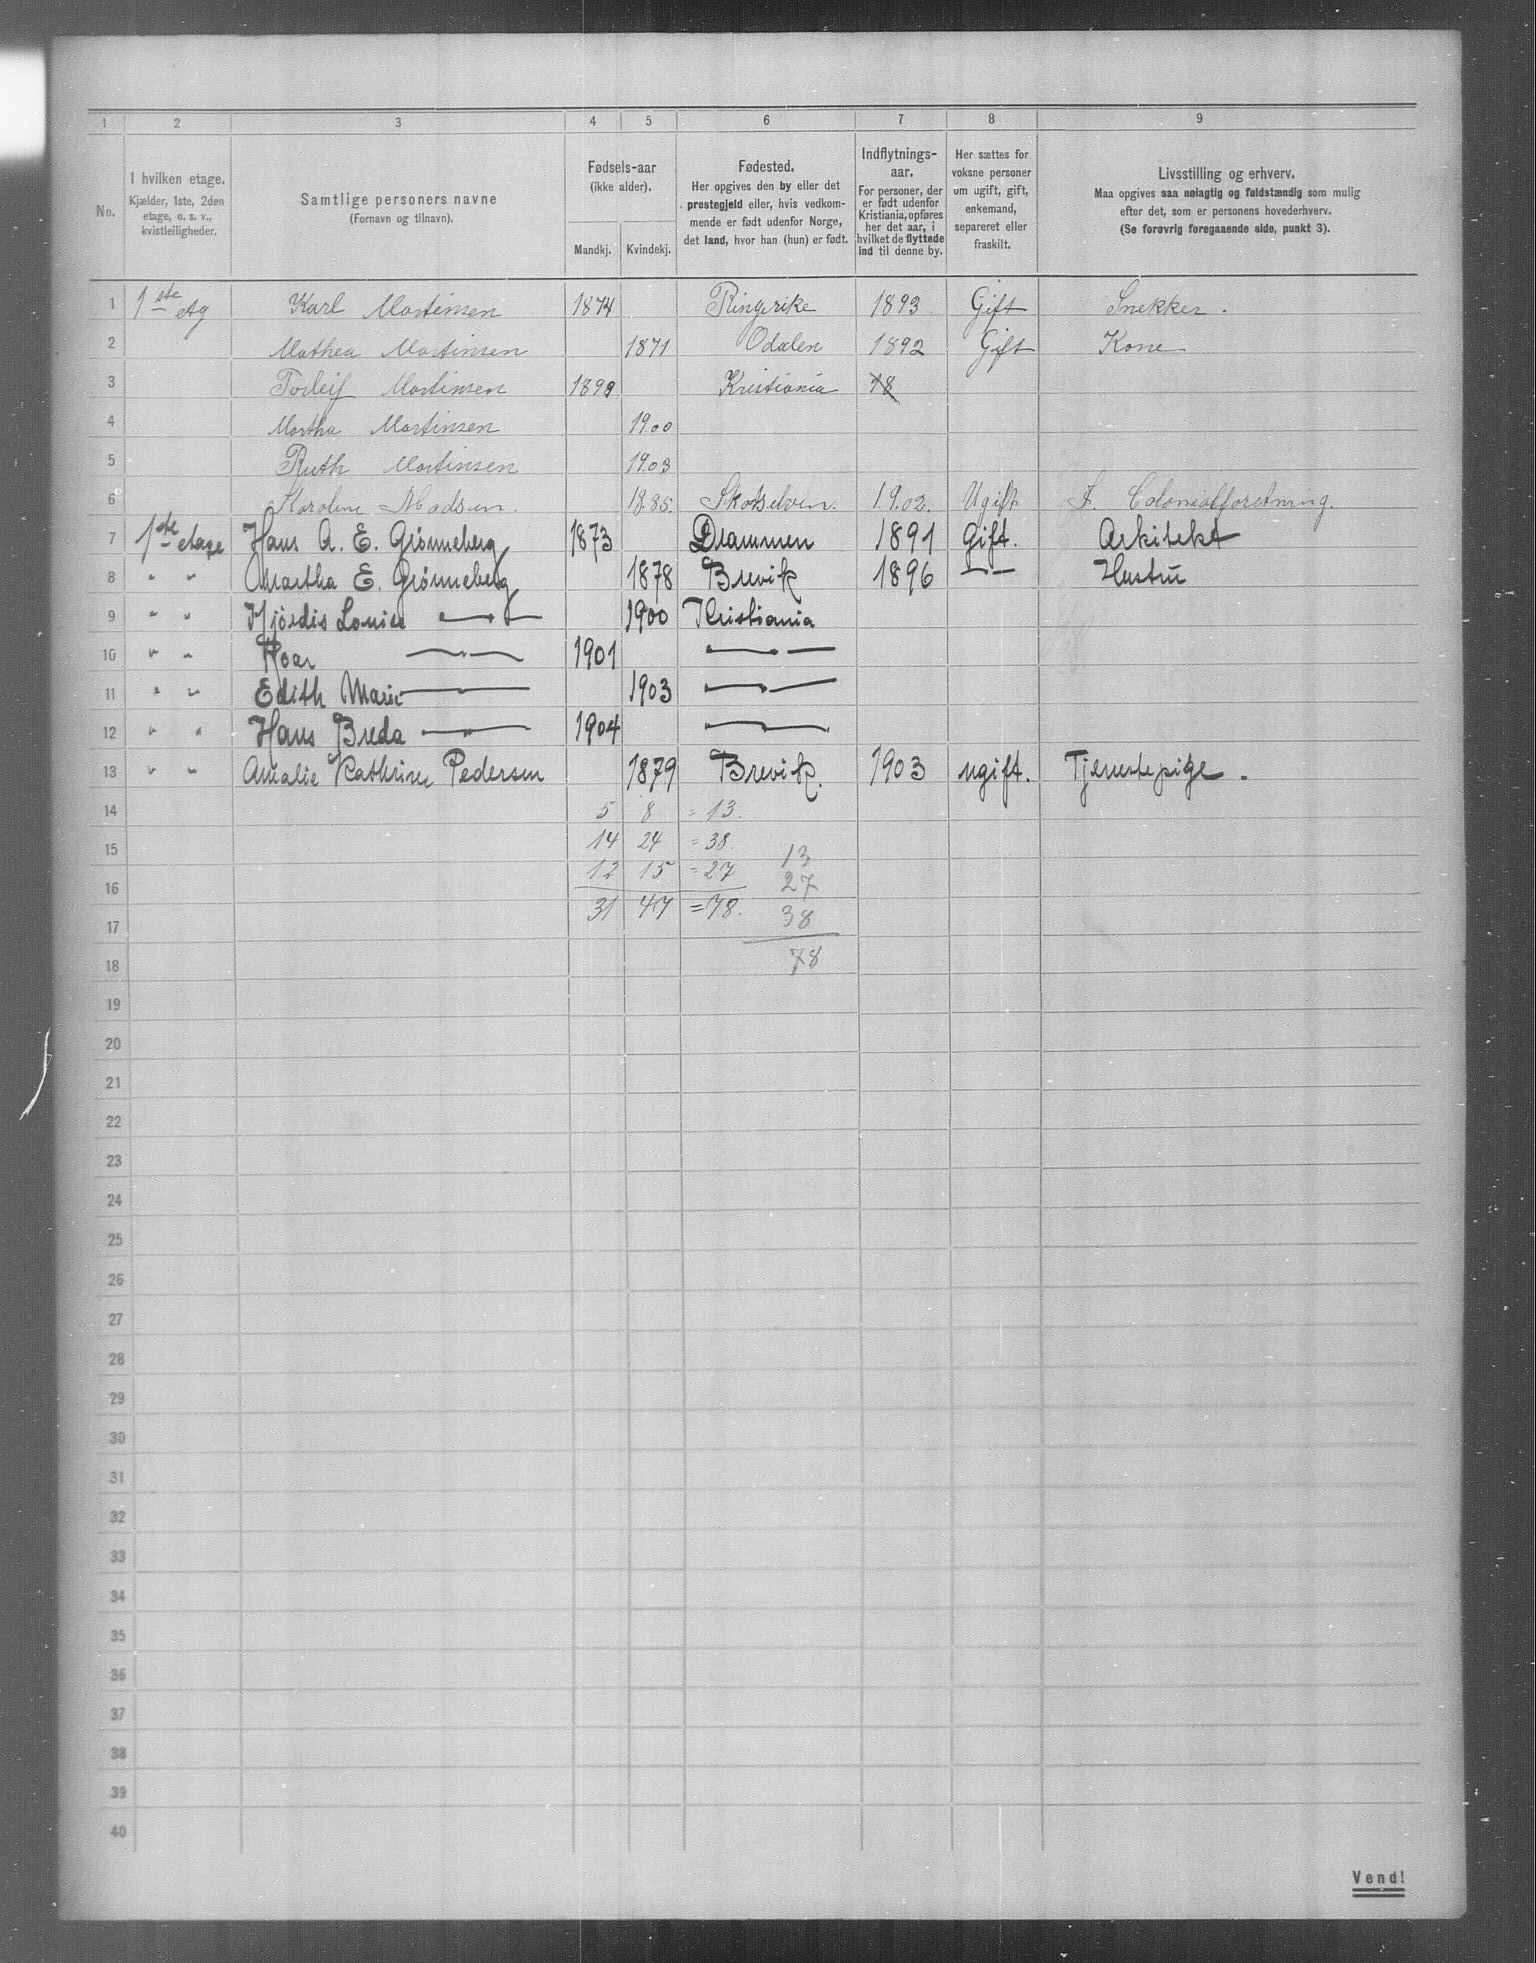 1 2 3 4 5 6 7 8 9
No.
I hvilken etage.
Kjælder, 1ste, 2den
etage, o. s. v.,
kvistleiligheder.
Samtlige personers navne
(Fornavn og tilnavn).
Fødsels-aar
(ikke alder).
Mandkj. Kvindekj.
Fødested.
Her opgives den by eller det
prestegjeld eller, hvis vedkom-
mende er født udenfor Norge,
det land, hvor han (hun) er født.
Indflytnings-
aar.
For personer, der
er født udenfor
Kristiania, opføres
her det aar, i
hvilket de flyttede
ind til denne by.
Her sættes for
voksne personer
om ugift, gift,
enkemand,
separeret eller
fraskilt.
Livsstilling og erhverv.
Maa opgives saa nøiagtig og fuldstændig som mulig
efter det, som er personens hovederhverv.
(Se forøvrig foregaaende side, punkt 3).
1 1ste etg Karl Martinsen 1874 Ringerike 1893 Gift Snekker.
2 Mathea Martinsen 1871 Odalen 1892 Gift Kone
3 Torleif Martinsen 1898 Kristiania 18
4 Martha Martinsen 1900
5 Ruth Martinsen 1903
6 Karoline Madsen. 1885. Skotselven. 1902. Ugift F. Colonialforetning.
7 1ste etage Hans A. E. Grønneberg 1873 Drammen 1891 Gift. Arkitekt
8 " " Martha E. Grønneberg 1878 Brevik 1896 — — Hustru
9 " " Hjørdis Louise —"— 1900 Kristiania
10 " " Roar —"— 1901 —"—
11 " " Edith Marie —"— 1903 —"—
12 " " Hans Breda —"— 1904 —"—
13 " " Amalie Kathrine Pedersen 1879 Brevik. 1903 ugift. Tjenestepige.
14 5 8 = 13.
15 14 24 = 38. 13
16 12 15 = 27 27
17 31 47 = 78. 38
18 78
19
20
21
22
23
24
25
26
27
28
29
30
31
32
33
34
35
36
37
38
39
40
Vend!